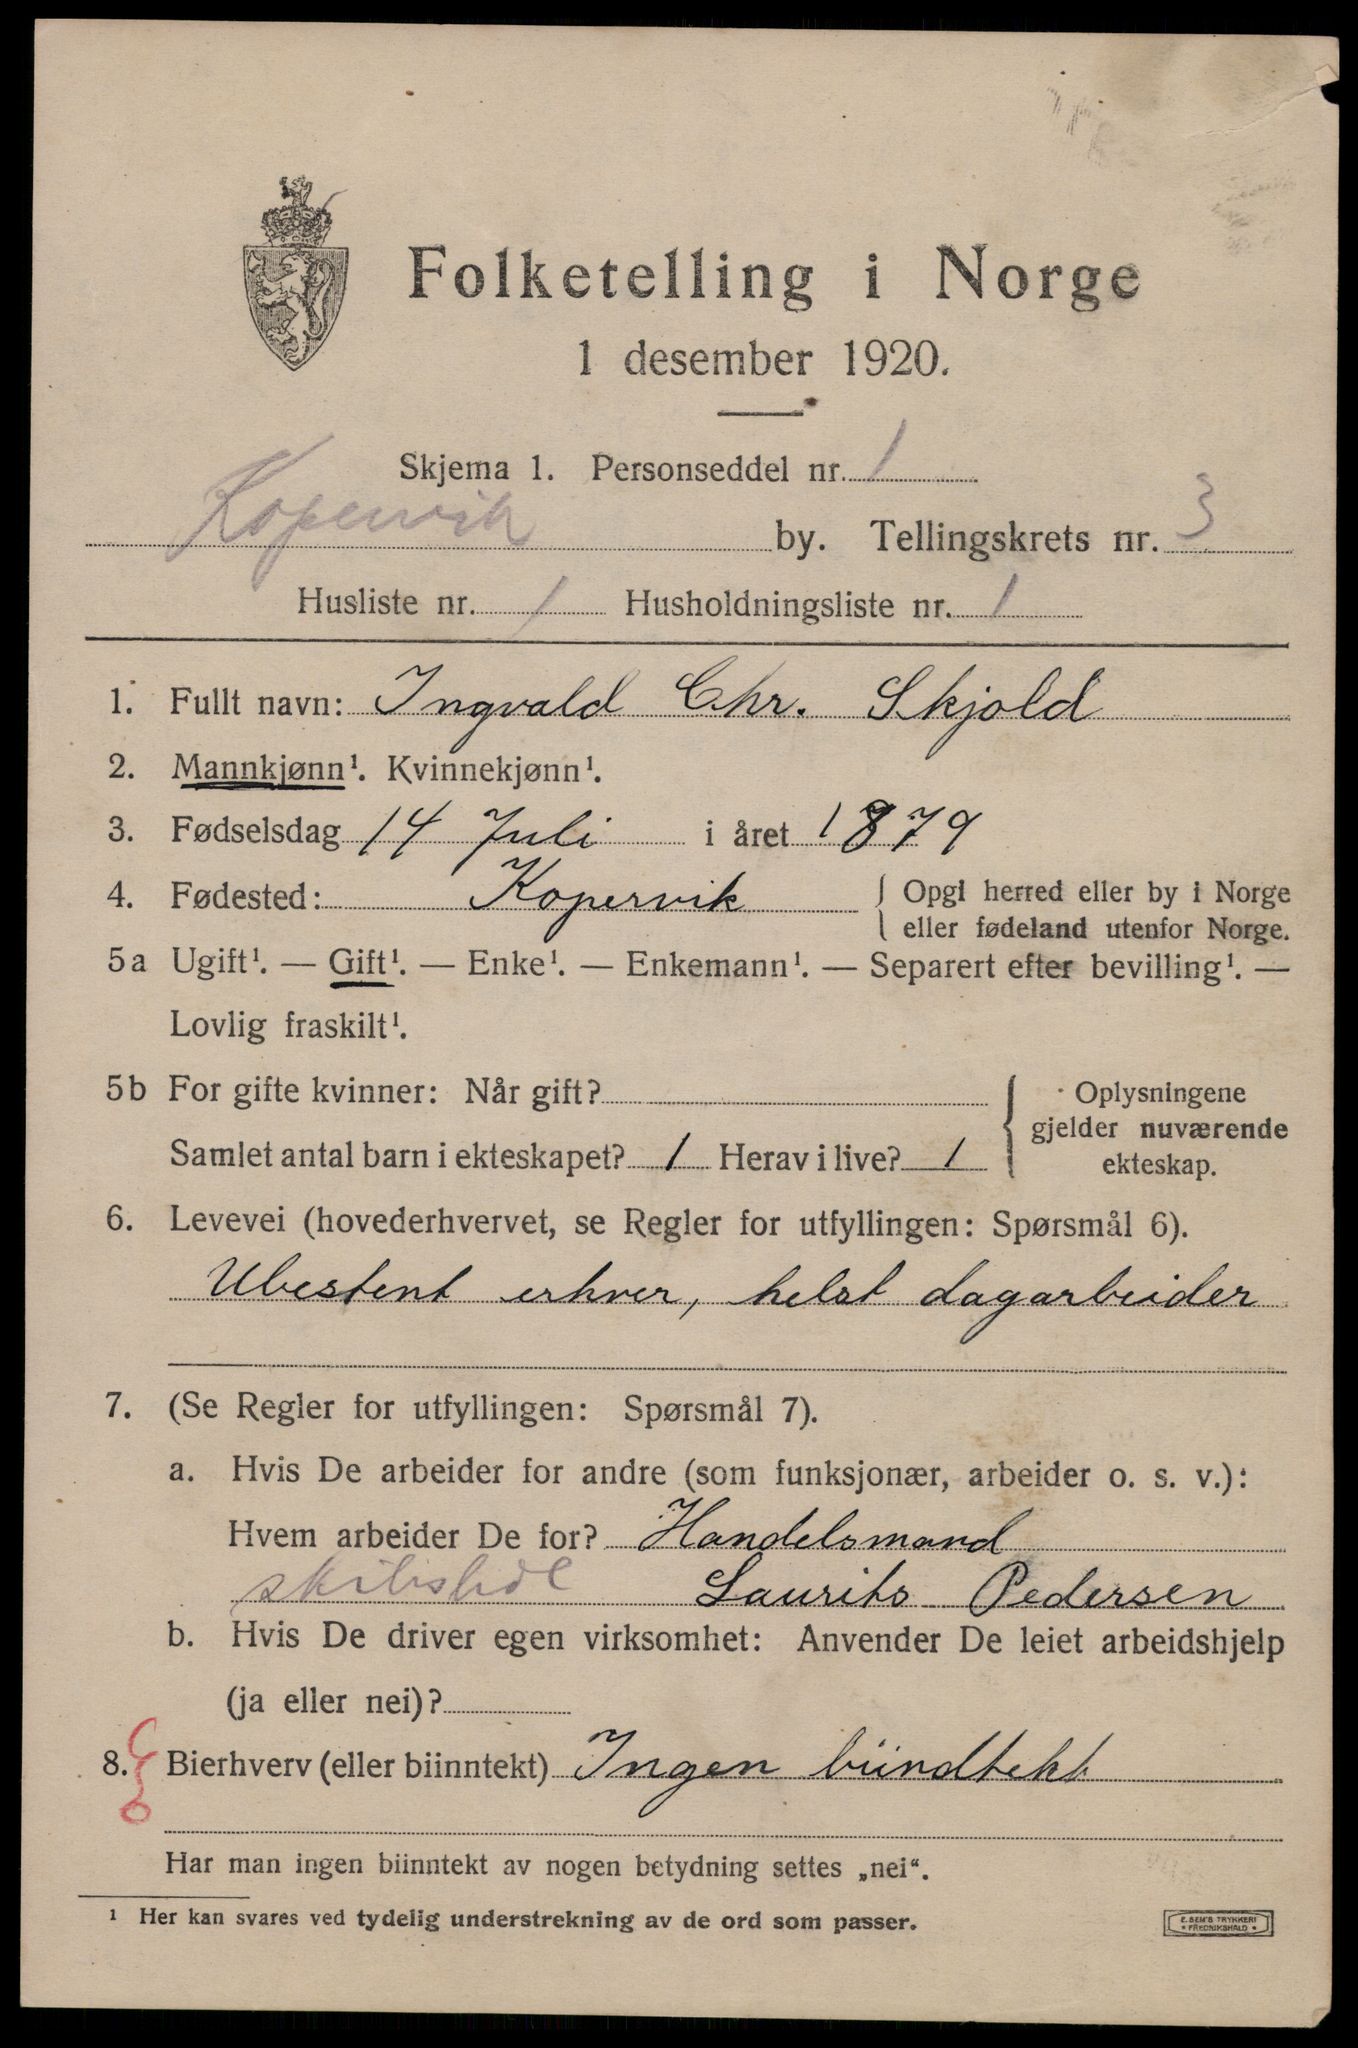 Folketelling i Norge
1 desember 1920.
Skjema 1. Personseddel nr. 1
Kopervik by. Tellingskrets nr. 3
Husliste nr. 1 Husholdningsliste nr. 1
1. Fullt navn: Ingvald Chr. Skjold
2. Mannkjønn¹. Kvinnekjønn¹.
3. Fødselsdag 14 Juli i året 1879
4. Fødested: Kopervik { Opgi herred eller by i Norge
eller fødeland utenfor Norge.
5a Ugift¹. — Gift¹. — Enke¹. — Enkemann¹. — Separert efter bevilling¹. —
Lovlig fraskilt¹.
5b For gifte kvinner: Når gift?
Samlet antal barn i ekteskapet? 1 Herav i live? 1
{ Oplysningene
gjelder nuværende
ekteskap.
6. Levevei (hovederhvervet, se Regler for utfyllingen: Spørsmål 6).
Ubestent erhver, helst dagarbeider
7. (Se Regler for utfyllingen: Spørsmål 7).
a. Hvis De arbeider for andre (som funksjonær, arbeider o. s. v.):
Hvem arbeider De for? Handelsmand
Laurits Pedersen
b. Hvis De driver egen virksomhet: Anvender De leiet arbeidshjelp
(ja eller nei)?
8. Bierhverv (eller biinntekt) Ingen biindtekt
Har man ingen biinntekt av nogen betydning settes „nei“.
¹ Her kan svares ved tydelig understrekning av de ord som passer.
E. SEM'S TRYKKERI
* FREDRIKSHALD *